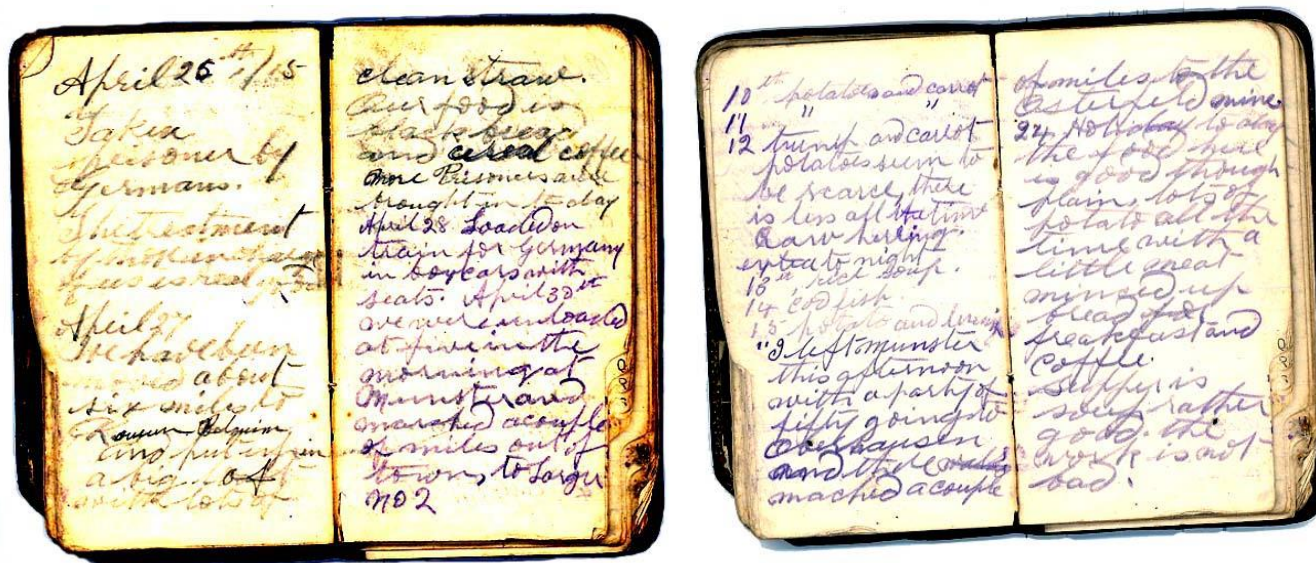 April 25th/15
Taken
prisoner by
Germans.
The treatment
by most in charge
of us is real
April 27
We have been
moved about
six miles to
Belgium
and put up in
a big loft
with lots of
clean straw.
Our food is
black bread
and cereal coffee
more Prisoners are
brought in to day
April 28 Loaded on
train for Germany
in boxcars with
seats. April 30th
we were unloaded
at five in the
morning at
Munster and
marched a couple
of miles out of
town, to Larger
No 2
10th potatoes and carrot
11 " "
12 turnip and carrot
potatoes seem to
be scarce, there
is less all the time
Raw herring
extra to night
13th rice soup.
14 cod fish.
15 potato and
" I left munster
this afternoon
with a party of
fifty going to
and there
mached a couple
of miles to the
mine.
24 Holiday to day
the food here
is good though
plain, lots of
potato all the
time with a
little meat
minced up
bread for
breakfast and
coffee.
Supper is
soup, rather
good. the
work is not
bad.